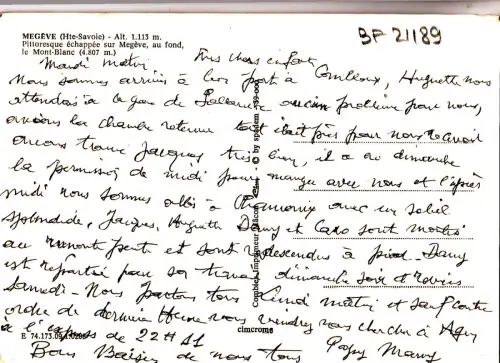 BF 21189
MEGÈVE (Hte-Savoie) - Alt. 1.113 m.
Pittoresque échappée sur Megève, au fond,
le Mont-Blanc (4.807 m.)
Mardi matin Très chers enfants
Nous sommes arrivés à bon port à Combloux, Huguette nous
attendait à la gare de Sallanches aucun problème pour nous,
avions la chambre retenue tout était prêt pour nous recevoir
avons trouvé Jacques très bien, il a eu dimanche
la permission de midi pour manger avec nous et l'après
midi nous sommes allés à Chamonix avec un soleil
splendide, Jacques, Huguette Dany et Caro sont montés
au remonte pente et sont redescendus à pied - Dany
est repartie pour son travail dimanche soir et revient
samedi - Nous partons tous lundi matin et sauf contre
ordre de dernière heure vous viendrez nous chercher à
à l'express de 22H 11
Bons Baisers de nous tous Papy Mamy
by spadem
cimcroms
E 74.173.09